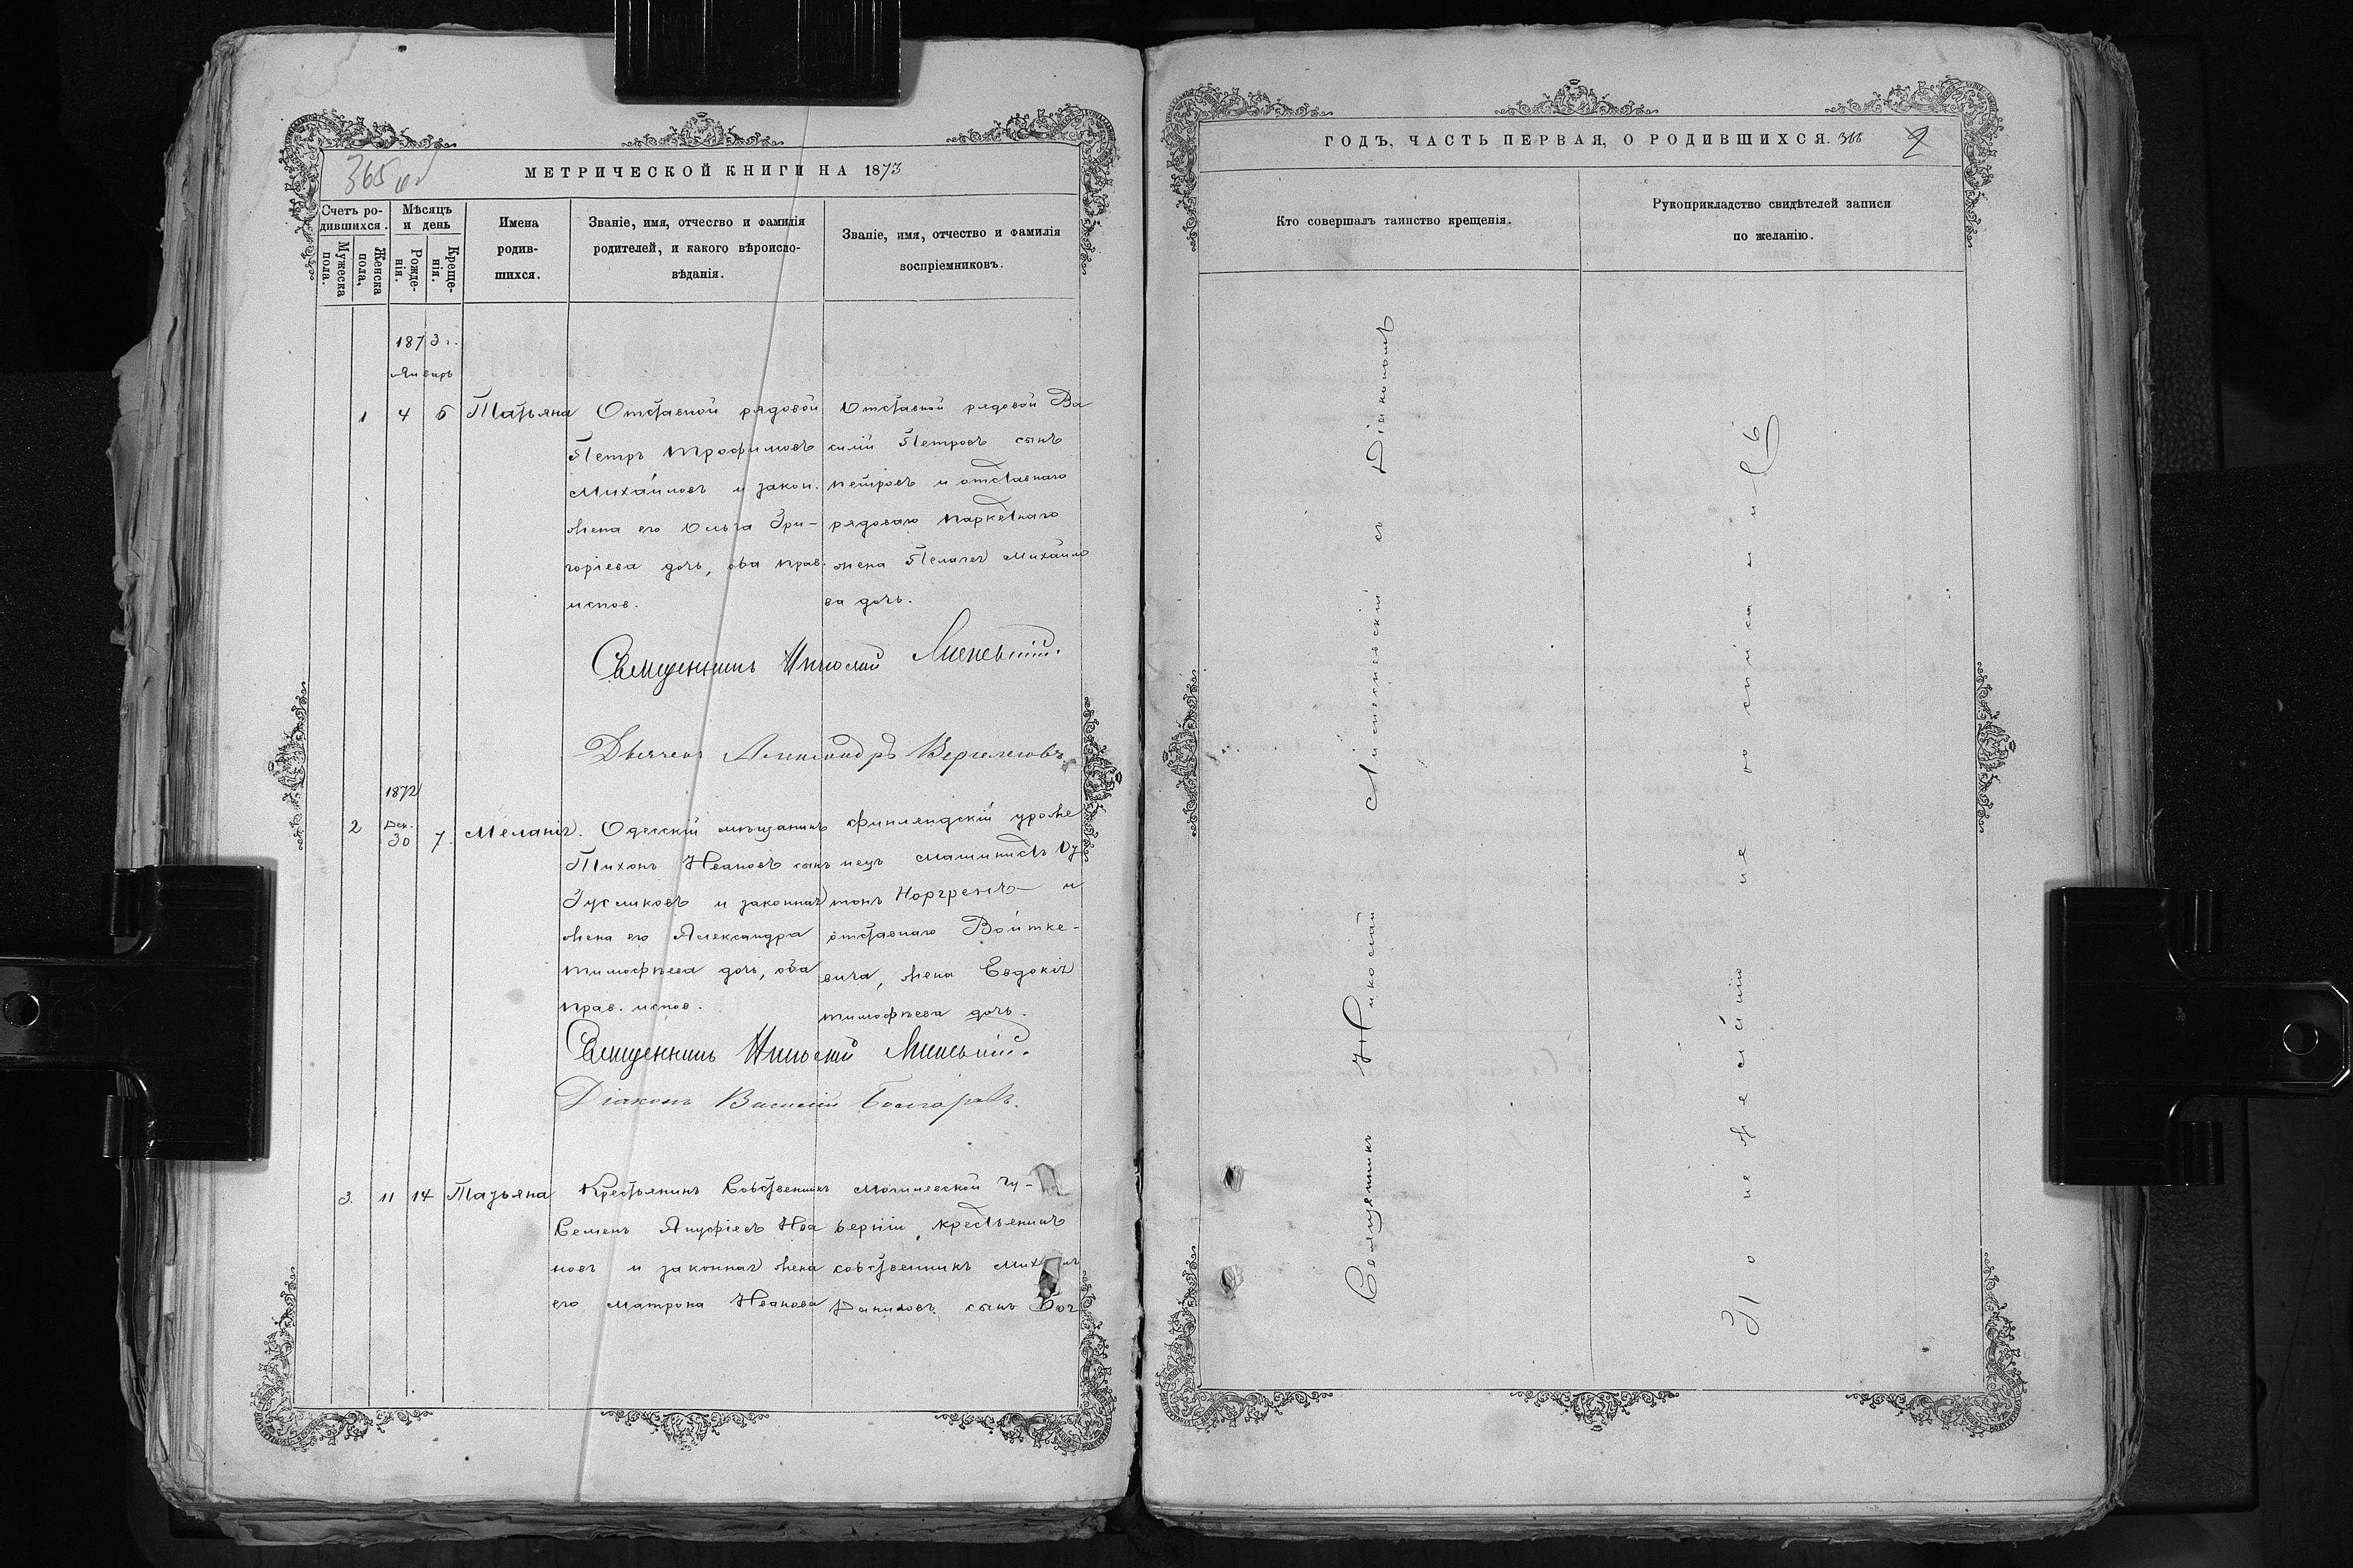 365
МЕТРИЧЕСКОЙ КНИГИ НА 1873
Счетъ ро-
дившихся.
Мужеска
пола.
Женска
пола.
Мѣсяцъ
и день
Рожде-
нія.
Креще-
нія.
Имена
родив-
шихся.
Званіе, имя, отчество и фамилія
родителей, и какого вѣроиспо-
вѣданія.
Званіе, имя, отчество и фамилія
воспріемниковъ.
1873 г.
Январь
1 4 6 Татьяна
Отставной рядовой
Петръ Трофимовъ
Михайловъ и закон.
жена его Ольга Гри-
горіева дочь, оба прав.
испов.
Отставной рядовой Ва
силій Петровъ сынъ
Петровъ и отставнаго
рядоваго Паркетнаго
жена Пелагея Михайло
ва дочь.
Священникъ Николай
Александръ
1872
2 Дек. 30 7. Меланія.
Одесскій мѣщанинъ
Тихонъ Ивановъ сынъ
Гусликовъ и законная
жена его Александра
Тимофѣева дочь, оба
прав. испов.
финляндскій уроже
нецъ машинистъ
Норгренъ и
отставнаго Войтке-
вича, жена Евдокія
Тимофѣева дочь.
Священникъ Николай
Діаконъ Василій
3. 11 14 Татьяна
Крестьянинъ Собственникъ
Семенъ Ануфріевъ Ива
новъ и законная жена
его Матрона Иванова
Могилевской гу-
берніи, крестьянинъ
собственникъ
Даниловъ сынъ
ГОДЪ, ЧАСТЬ ПЕРВАЯ, О РОДИВШИХСЯ. 366
2
Кто совершалъ таинство крещенія.
Рукоприкладство свидѣтелей записи
по желанію.
Священникъ Николай съ Діакономъ
По не желанію не